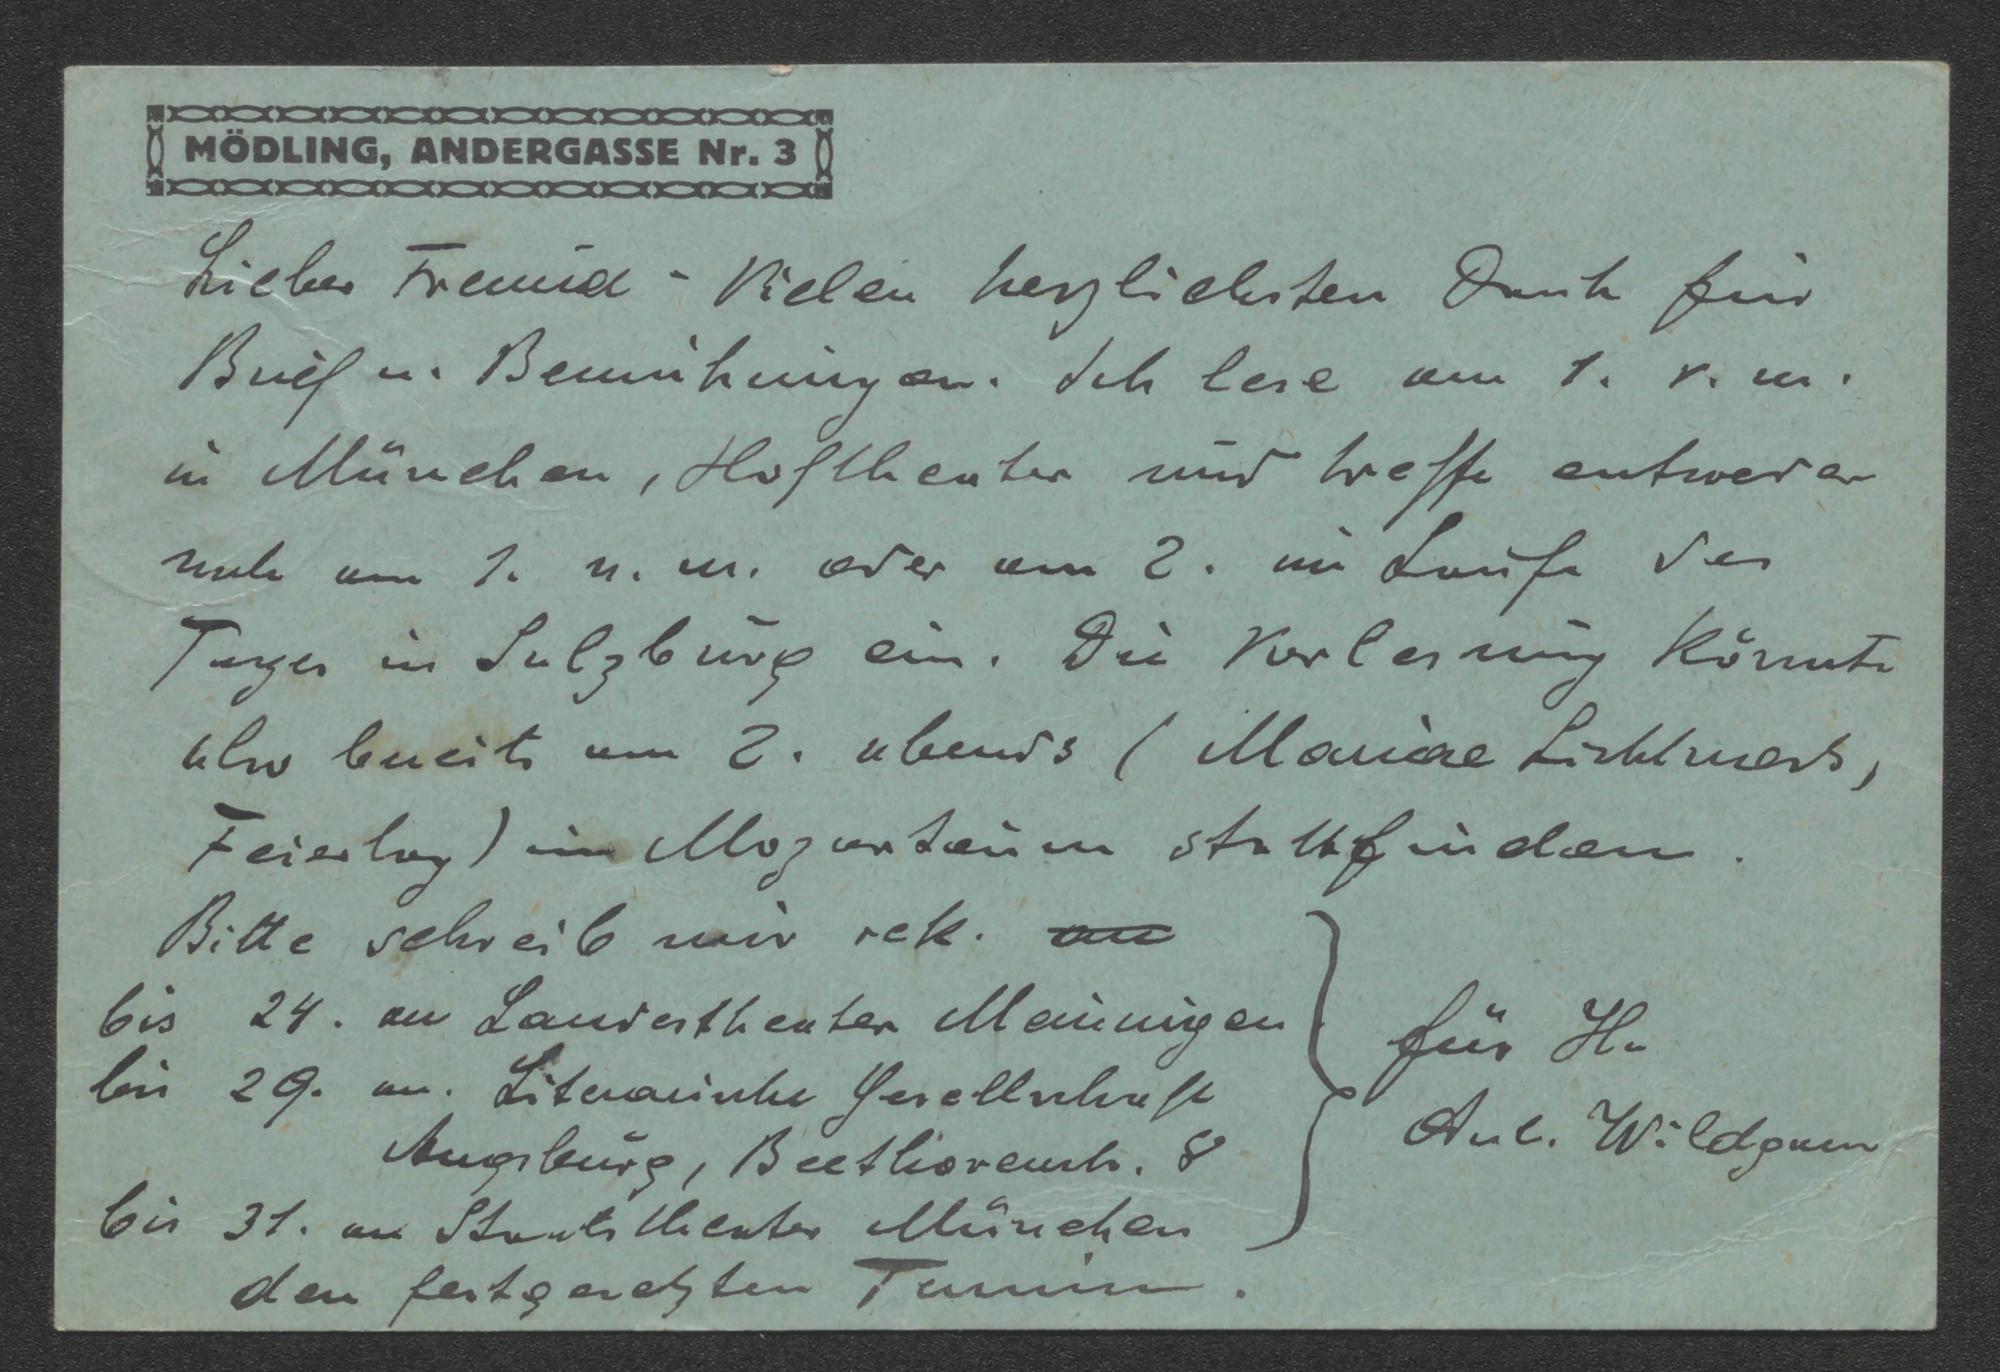 MÖDLING, ANDERGASSE Nr. 3
Lieber Freund - Vielen herzlichsten Dank für
Brief u. Bemühungen. Ich lese am 1. v. m.
in München, Hoftheater und treffe entweder
noch am 1. n. m. oder am 2. im Laufe des
Tages in Salzburg ein. Die Vorlesung könnte
also bereits am 2. abends (Mariae Lichtmess,
Feiertag) im Mozarteum stattfinden.
Bitte schreib mir rek. an
bis 24. an Landestheater Meiningen
bis 29. an. Literarische Gesellschaft
Augsburg, Beethovenstr. 8
bis 31. an Staatstheater München
den festgesetzten Termin.
für H.
Ant. Wildgans